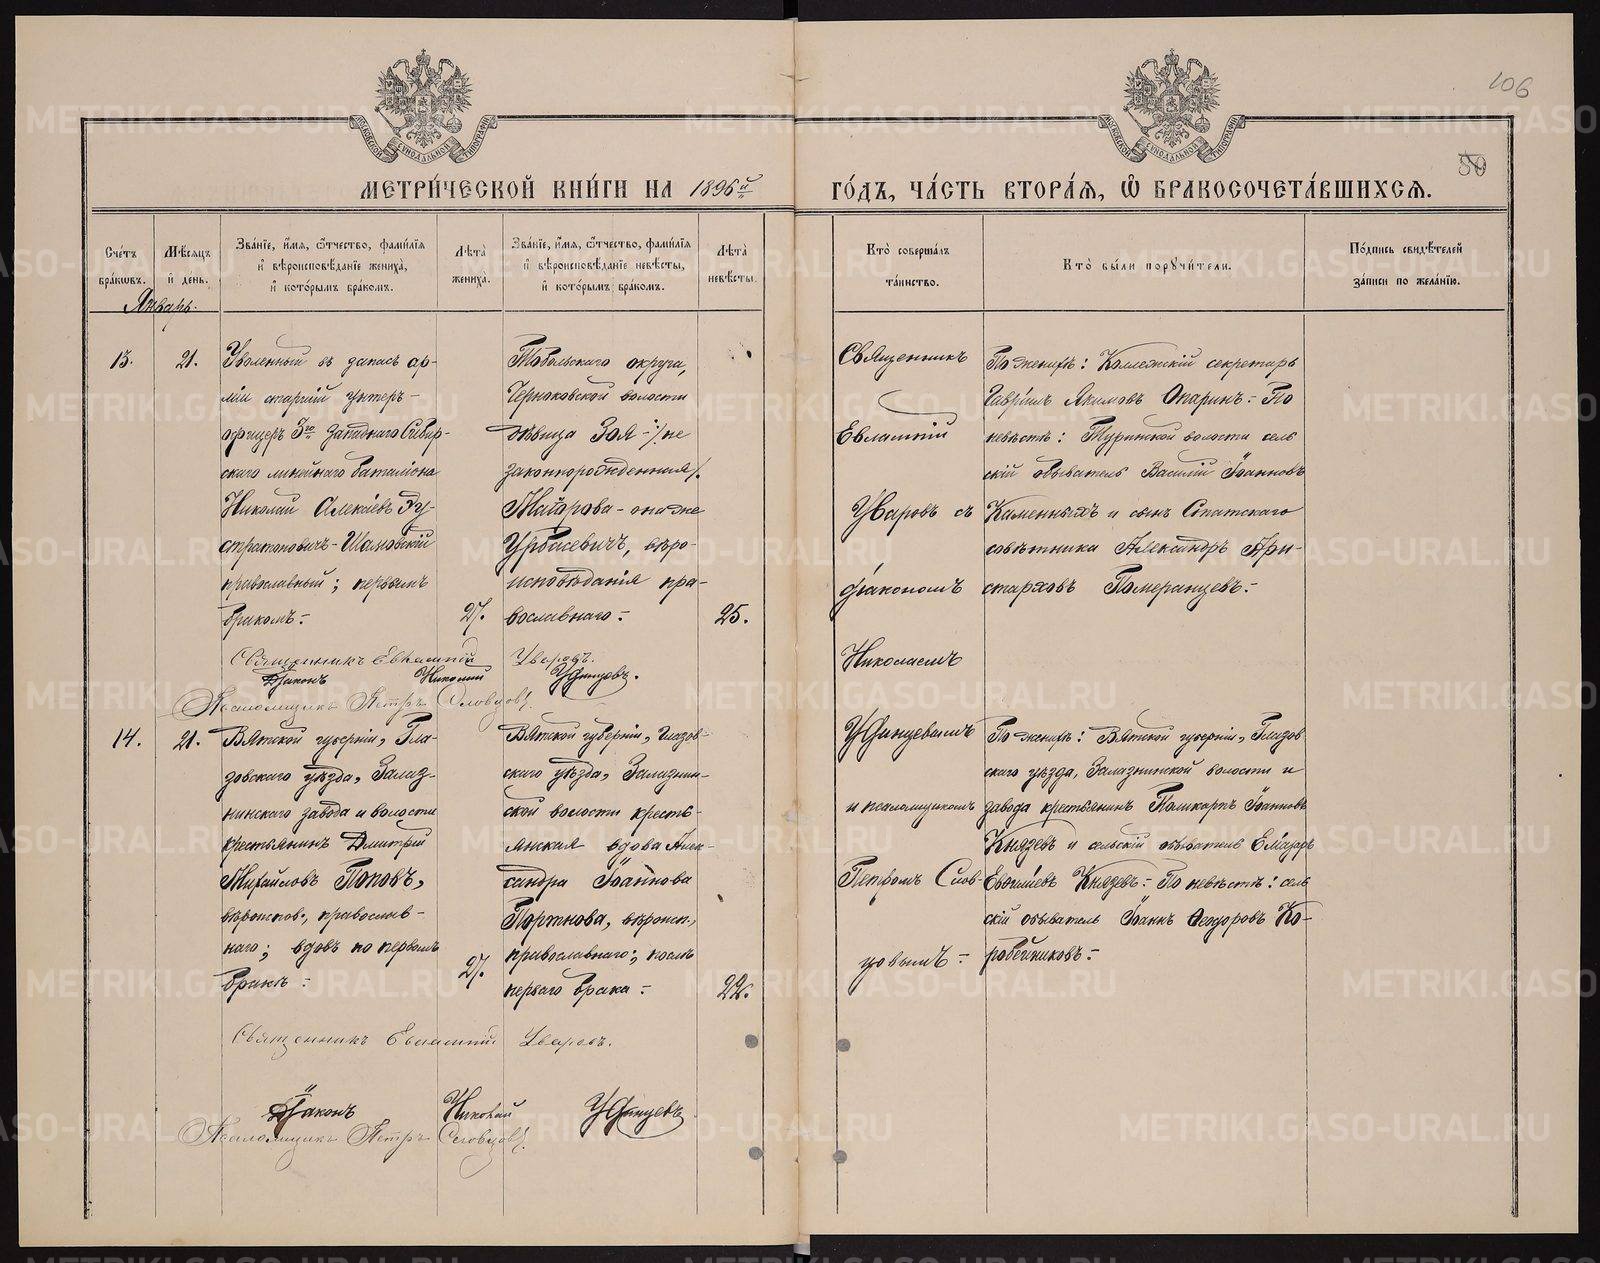 106
50
МЕТРИ́ЧЕСКОЙ КНИ́ГИ НА 1896й ГО́ДЪ, ЧА́СТЬ ВТОРА́Я, Ѡ БРАКОСОЧЕТА́ВШИХСЯ.
Сче́тъ бра́кѡвъ.
Мѣ́сяцъ и҆ де́нь.
Зва́нїе, и҆́мя, ѻ҆́тчество, фами́лїя и҆ вѣроисповѣ́данїе жениха̀, и҆ кото́рымъ бра́комъ.
Лѣта̀ жениха̀.
Зва́нїе, и҆́мя, ѻ҆́тчество, фами́лїя и҆ вѣроисповѣ́данїе невѣ́сты, и҆ кото́рымъ бра́комъ.
Лѣта̀ невѣ́сты.
Кто̀ соверша́лъ та́инство.
Кто̀ бы́ли порꙋчи́тели.
По́дпись свидѣ́телей за́писи по жела́нїю.
Январь.
13.
21.
Уволенный въ запасъ ар-
міи старшій унтеръ-
офицеръ 3го Западнаго Сибир-
скаго линейнаго баталіона
Николай Алексѣевъ Эу-
стратовичъ-Шамовскій
православный; первымъ
бракомъ.-
27.
Тобольскаго округа,
Черноковской волости
дѣвица Зоя -/: не
законнорожденная/.
Майорова - она же
Урбасевичъ, вѣро-
исповѣданія пра-
вославнаго.-
25.
Священникъ
Евлампій
Уваровъ съ
діакономъ
Николаемъ
Удинцевымъ
и псаломщикомъ
Петромъ Слов-
цовымъ.-
По женихѣ: Коллежскій секретарь
Гавріилъ Якимовъ Опаринъ.- По
невѣстѣ: Туринской волости сель
скій обыватель Василій Іоанновъ
Каменныхъ и сынъ Статскаго
совѣтника Александръ Ари-
старховъ Померанцевъ.-
Священникъ Евлампій Уваровъ.
Діаконъ Николай Удинцовъ.
Псаломщикъ Петръ Словцовъ.
14.
21.
Вятской губерніи, Гла-
зовскаго уѣзда, Залаз-
нинскаго завода и волости
крестьянинъ Дмитрій
Михайловъ Поповъ,
вѣроиспов., православ-
наго; вдовъ по первомъ
бракѣ.-
27.
Вятской губерніи, Глазов-
скаго уѣзда, Залазнин-
ской волости кресть-
янская вдова Алек-
сандра Іоаннова
Портнова, вѣроисп.,
православнаго; послѣ
перваго брака.-
22.
По женихѣ: Вятской губерніи, Глазов
скаго уѣзда, Залазнинской волости и
завода крестьянинъ Поликарпъ Іоанновъ
Князевъ и сельскій обыватель Елеазаръ
Евѳиміевъ Князевъ.- По невѣстѣ: сель
скій обыватель Іоаннъ Ѳеодоровъ Ко-
робейниковъ.-
Священникъ Евлампій Уваровъ.
Діаконъ Николай Удинцевъ
Псаломщикъ Петръ Словцовъ.
METRIKI.GASO-URAL.RU